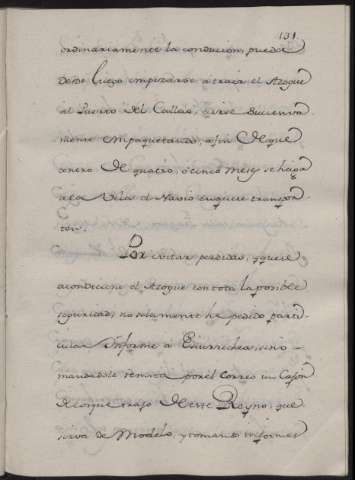 131
ordinariamente la conducion, puede
desde luego empezarse a traer el Azogue
al Puerto del Callao, è irse sucesiva-
mente empaquetando, a fin de que
dentro de quatro, ó cinco meses se haga
a la Vela el Navio en que se transpor-
ten.
Por evitar perdidas, y que se
acondicione el Azogue con toda la posible
seguridad, no solamente he pedido parti-
cular Informe à Enurrechea, sino
mandadole remita por el Correo un Cajon
de los que trajo de ese Reyno, que
sirva de Modelo, y tomando informes